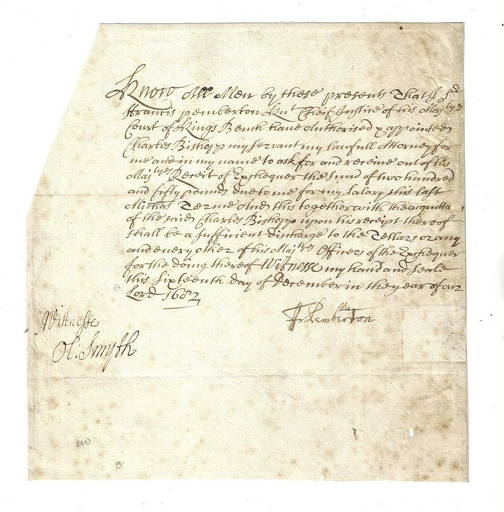 Know All Men by these presents That I Sr
Francis Pemberton Knt Chief Justice of his Majtyes
Court of Kings Bench have Authorised & appointed
Charles Bishopp my servant my lawfull Attorney for
me and in my name to aske for and receive out of his
Majtyes Receit of Exchequer the Sum of two hundred
and fifty pounds due to me for my Salary this last
Michas Terme And this together with the acquitta
of the said Charles Bishopp upon his receipt thereof
shall be a sufficient discharge to the Tellars or any
and every other of his Majtyes Officers of the Exchequer
for the doing thereof Witness my hand and Seale
this Sixteenth day of December in the yeare of our
Lord 1682
Fr Pemberton
Wittnesse
Ol: Smyth